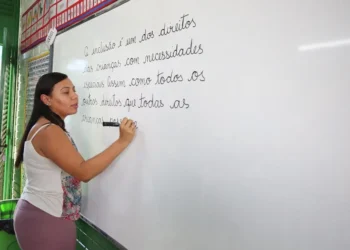 A inclusão é um dos direitos
das crianças com necessidades
especiais assim como todos os
outros direitos que todas as
crianças